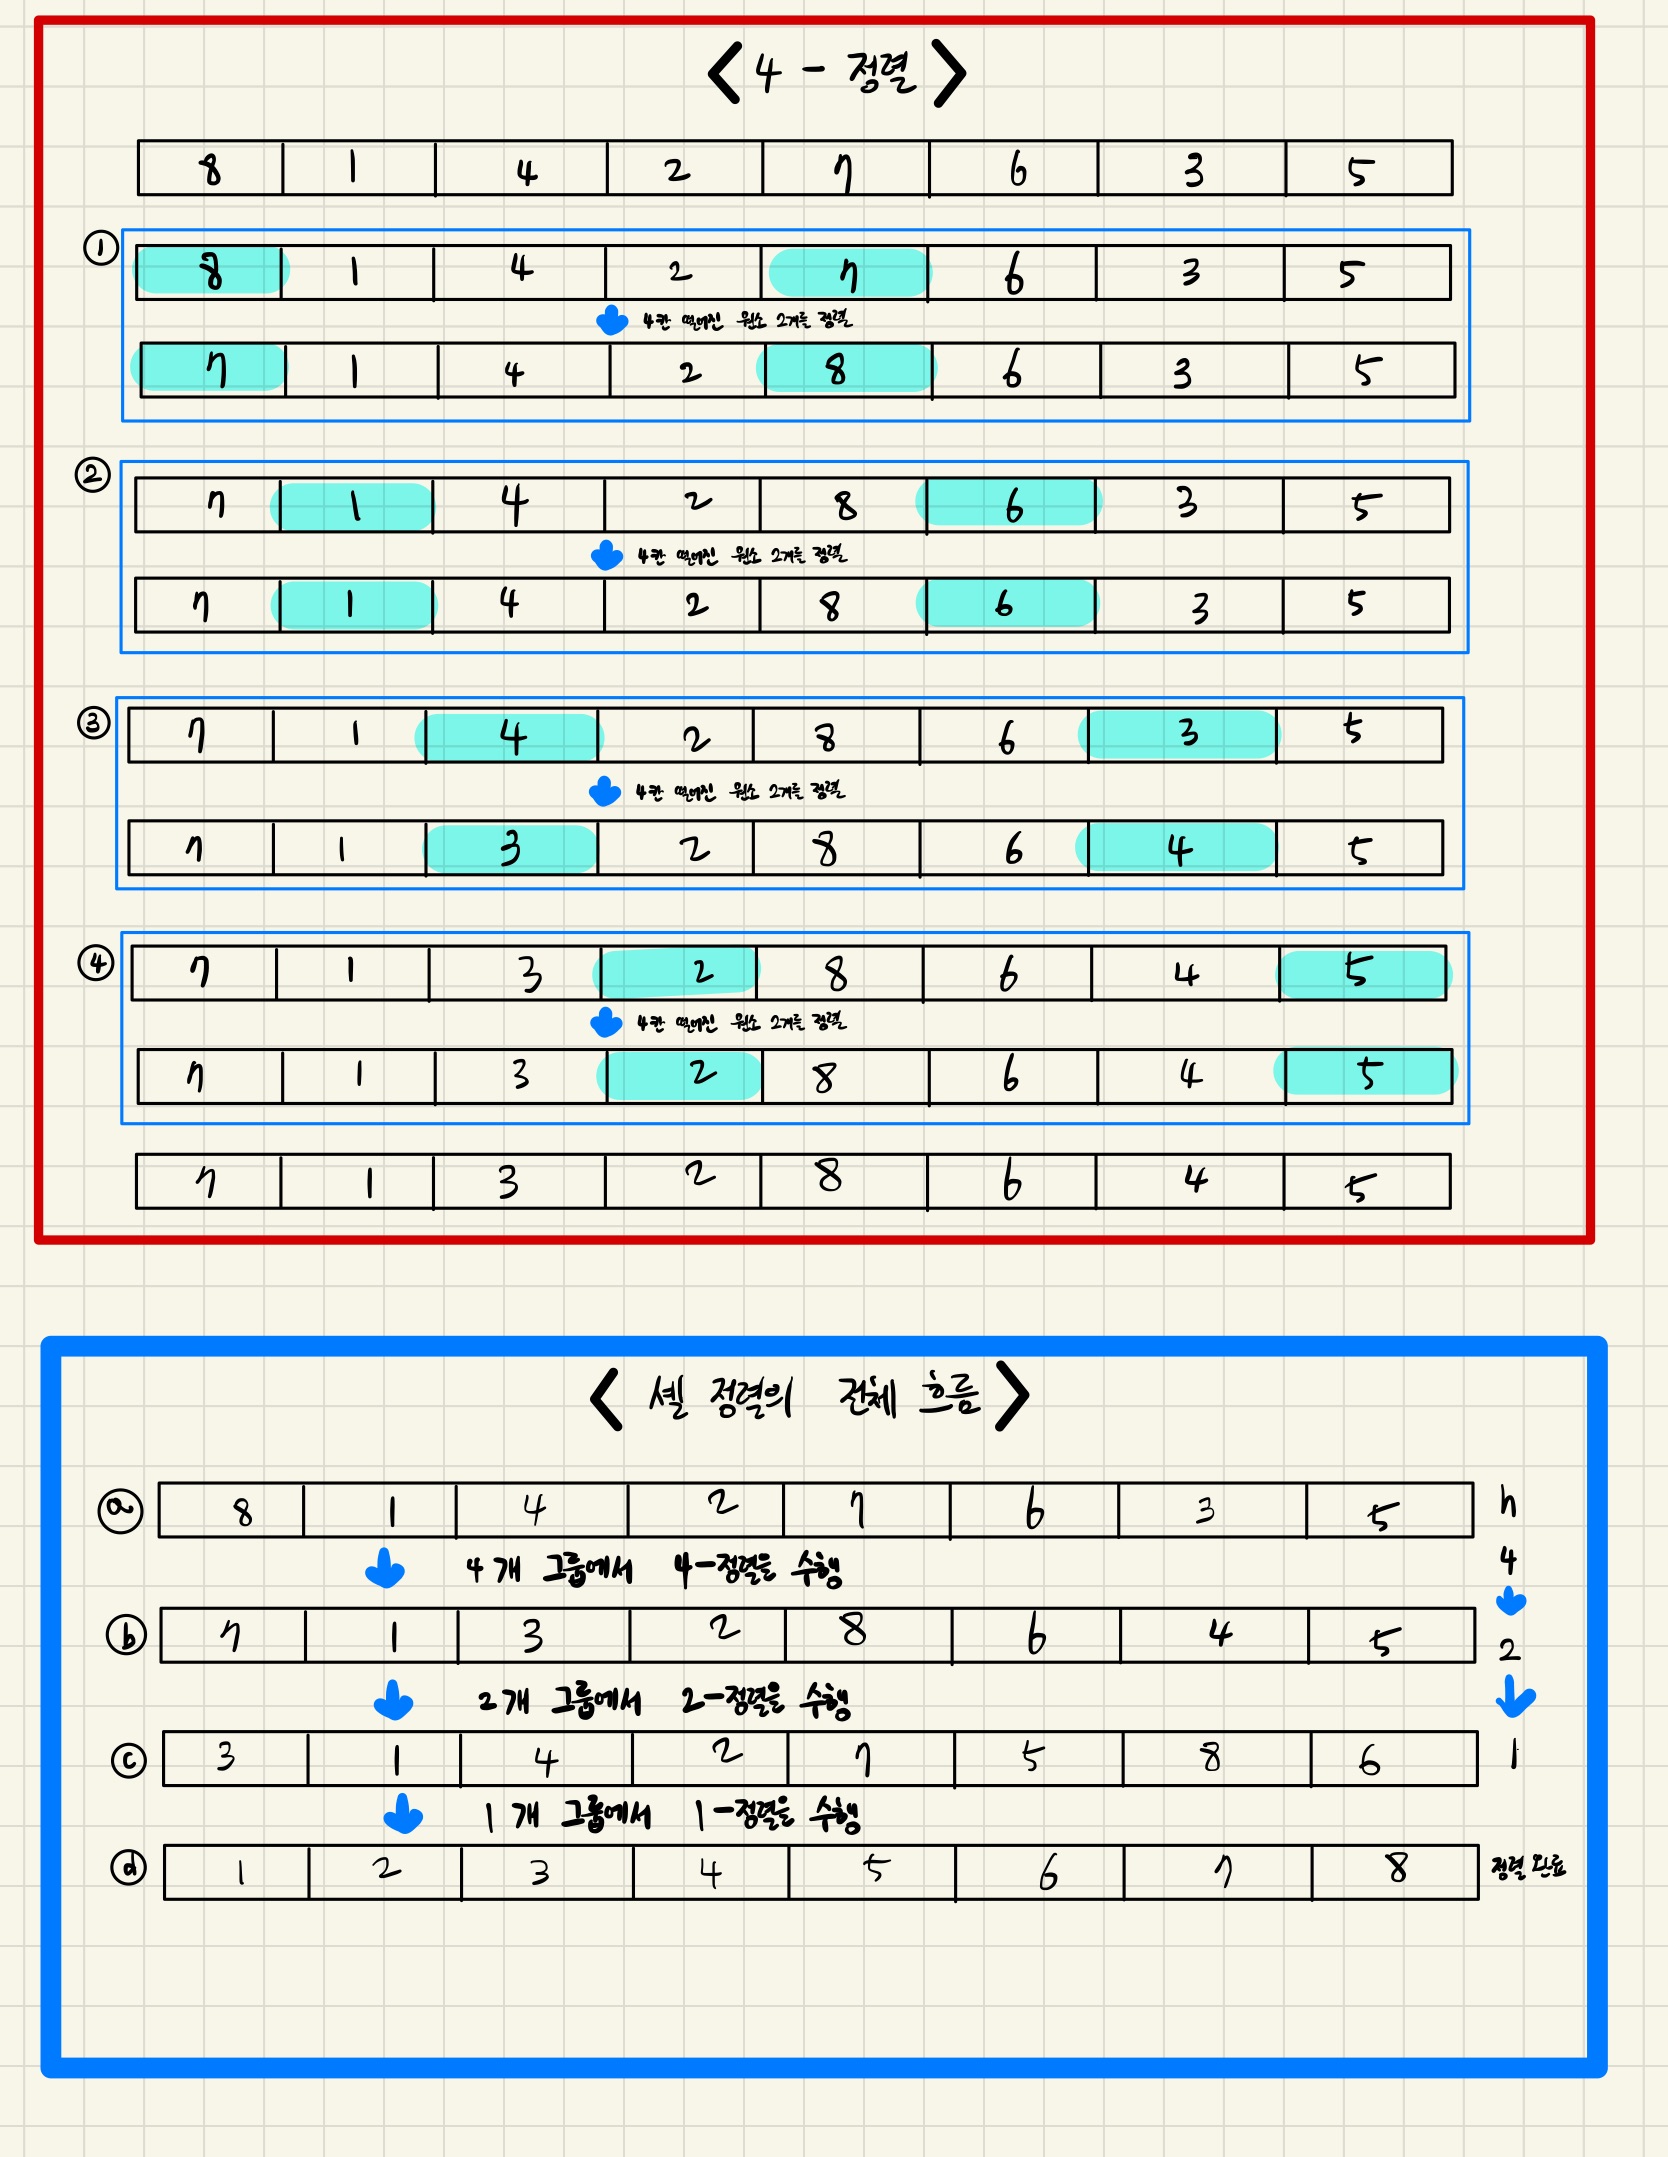 < 4 - 정렬 >
8 1 4 2 7 6 3 5
① 8 1 4 2 7 6 3 5
4칸 떨어진 원소 2개를 정렬
7 1 4 2 8 6 3 5
② 7 1 4 2 8 6 3 5
4칸 떨어진 원소 2개를 정렬
7 1 4 2 8 6 3 5
③ 7 1 4 2 8 6 3 5
4칸 떨어진 원소 2개를 정렬
7 1 3 2 8 6 4 5
④ 7 1 3 2 8 6 4 5
4칸 떨어진 원소 2개를 정렬
7 1 3 2 8 6 4 5
7 1 3 2 8 6 4 5
< 셸 정렬의 전체 흐름 >
ⓐ 8 1 4 2 7 6 3 5 h
4개 그룹에서 4-정렬을 수행 4
ⓑ 7 1 3 2 8 6 4 5 2
2개 그룹에서 2-정렬을 수행
ⓒ 3 1 4 2 7 5 8 6 1
1개 그룹에서 1-정렬을 수행
ⓓ 1 2 3 4 5 6 7 8 정렬 완료